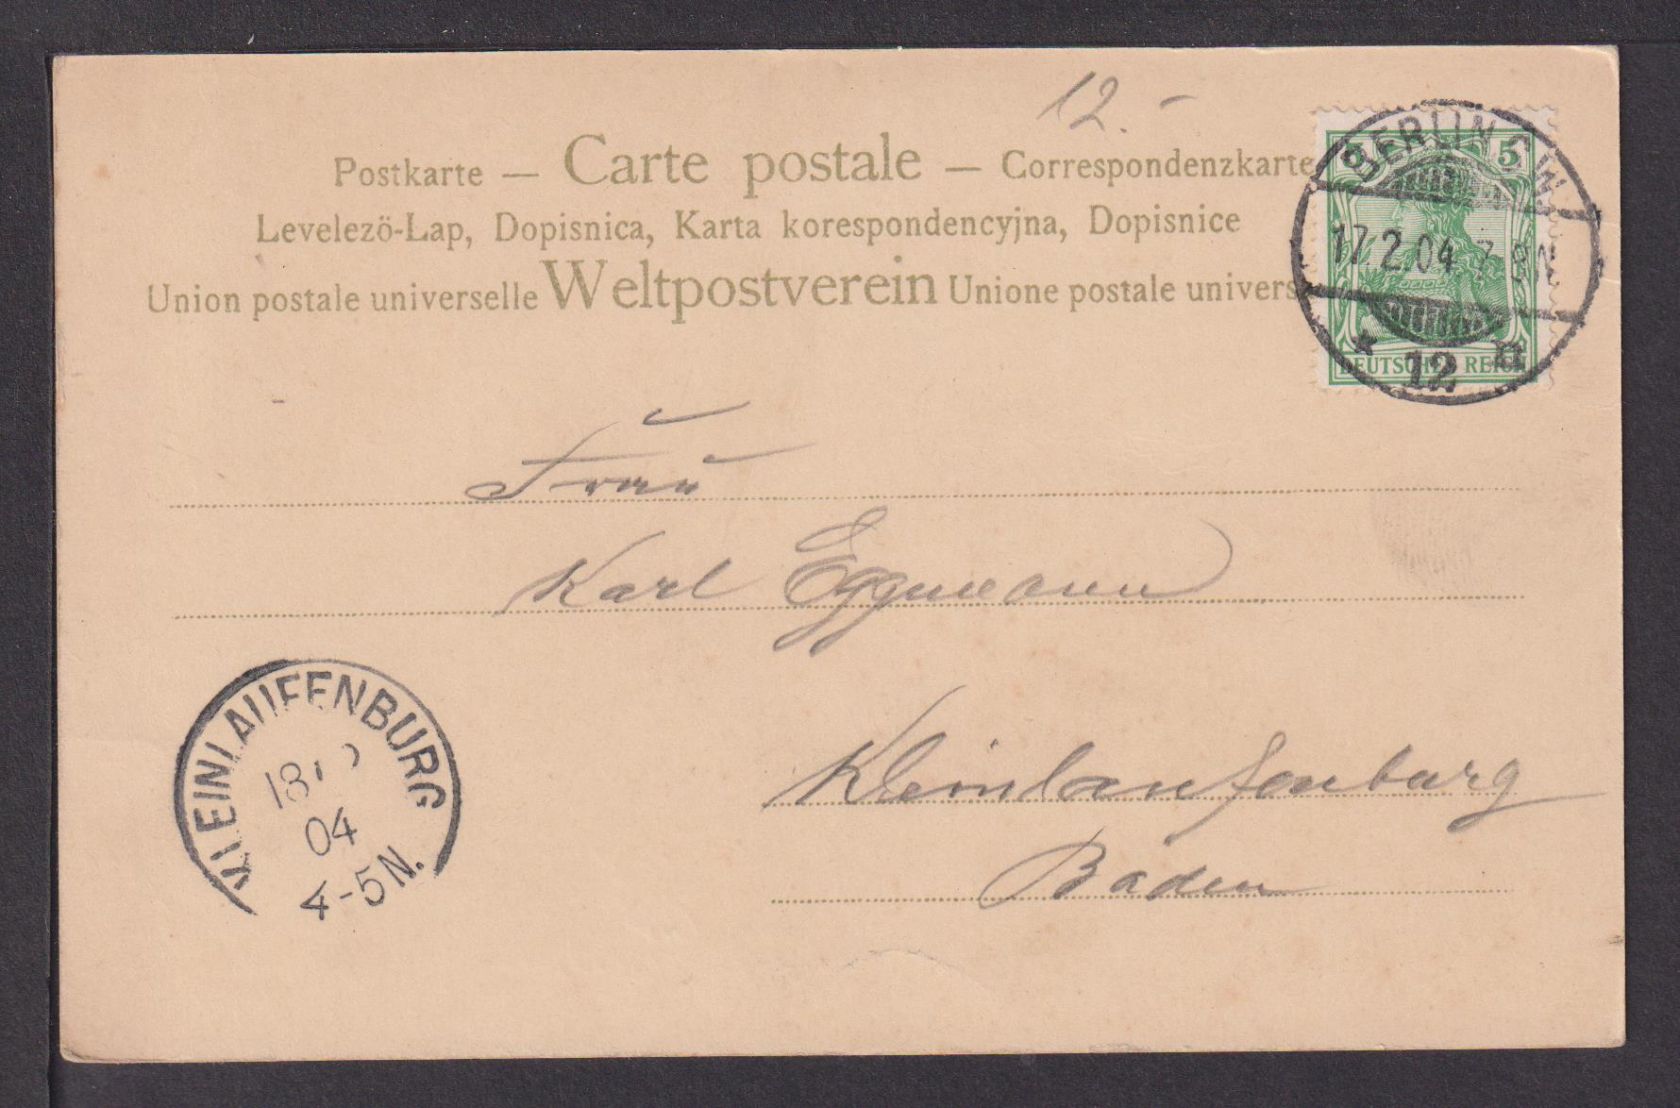 12.-
Postkarte — Carte postale — Correspondenzkarte
Levelezö-Lap, Dopisnica, Karta korespondencyjna, Dopisnice
Union postale universelle Weltpostverein Unione postale univers
BERLIN S.W.
17.2.04 7-8N
* 12 n
5 5
DEUTSCHES REICH
Frau
Karl Eggmann
Kleinlaufenburg
Baden
KLEINLAUFENBURG
18
04
4-5N.